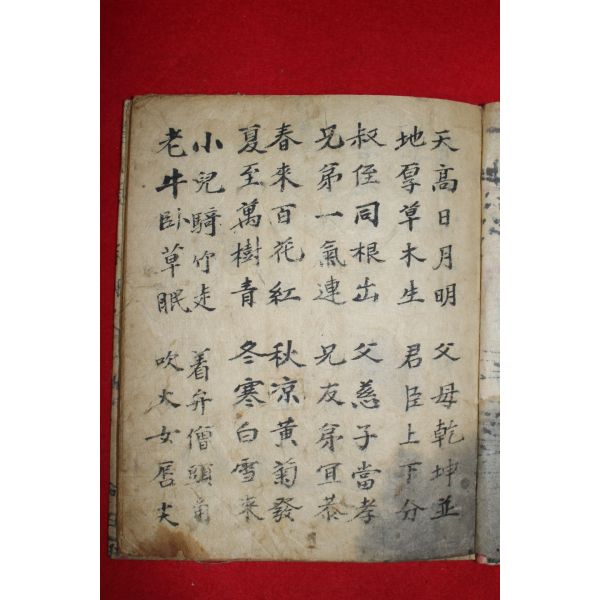 天高日月明 父母乾坤並
地厚草木生 君臣上下分
叔侄同根出 父慈子當孝
兄弟一氣連 兄友弟宜恭
春來百花紅 秋凉黄菊發
夏至萬樹青 冬寒白雪来
小兒騎竹走 着弁僧頭角
老牛卧草眠 吹火女唇尖